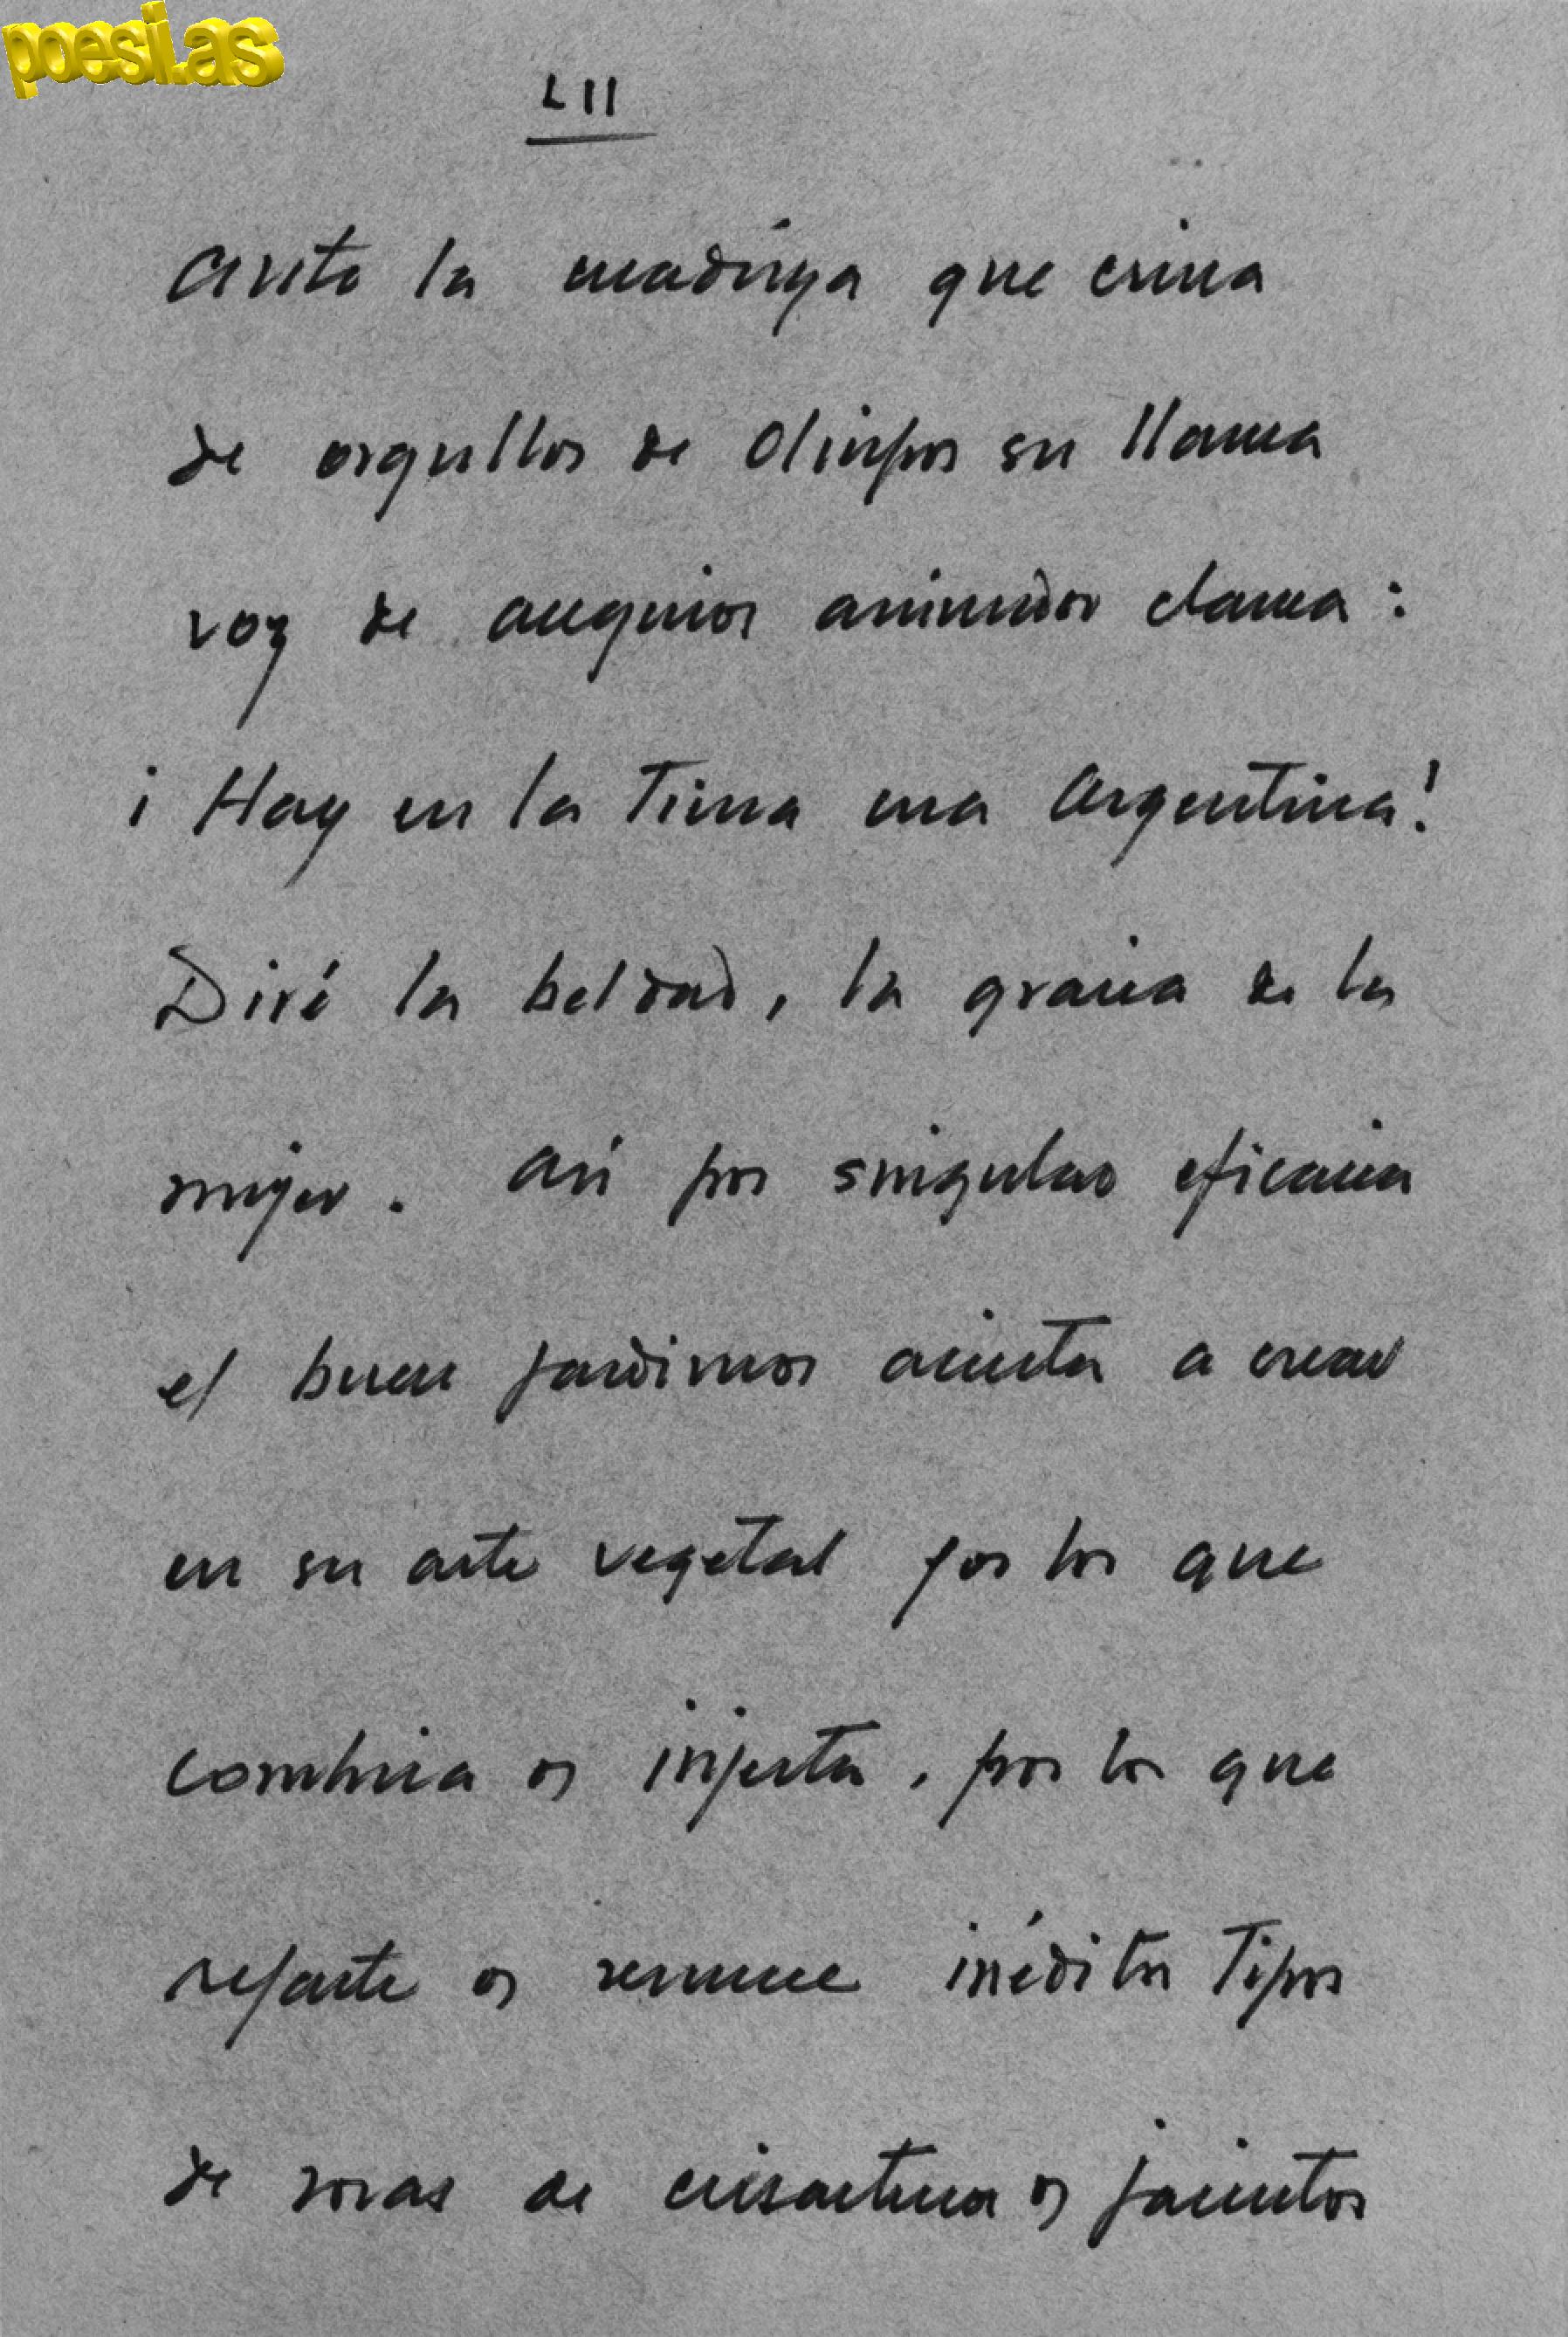 LII
la cuadriga que crina
de orgullos de Olimpos su llama
voz de augurios clama:
¡Hay en la Tierra una Argentina!
Diré la beldad, la gracia de la
mujer. Así por singular eficacia
el buen jardinero acierta a crear
en su arte vegetal por lo que
combina o injerta, por lo que
reparte o resume inéditos tipos
de rosas de o jacintos
poesi.as